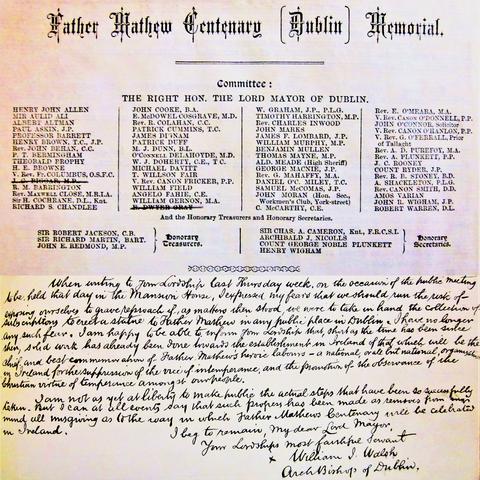 Father Mathew Centenary (Dublin) Memorial.
Committee:
THE RIGHT HON. THE LORD MAYOR OF DUBLIN.
HENRY JOHN ALLEN
MIR AULAD ALI
ALBERT ALTMAN
PAUL ASKIN, J.P.
PROFESSOR BARRETT
HENRY BROWN, T.C., J.P.
Rev. JOHN BEHAN, C.C.
P. T. BERMINGHAM
THEOBALD PROPHET
H. E. BROWNE
V. Rev. Fr. COLUMBUS, O.S.F.C.
R. M. BARRINGTON
Rev. MAXWEL CLOSE, M.R.I.A.
Sir H. COCHRANE, D.L., Knt.
RICHARD S. CHANDLEE
JOHN COOKE, B.A.
E. McDOWEL COSGRAVE, M.D.
Rev. R. COLAHAN, C.C.
PATRICK CUMMINS, T.C.
JAMES DUGNAM
PATRICK DUFF
M. J. DUNN, B.L.
O'CONNELL DELAHOYDE, M.D.
W. J. DOHERTY, C.E., T.C.
MICHAEL DEVITT
T. WILSON FAIR
V. Rev. CANON FRICKER, P.P.
WILLIAM FIELD
ANGELO FAHIE, C.E.
WILLIAM GERNON, M.A.
R. DWYER GRAY
W. GRAHAM, J.P., P.L.G.
TIMOTHY HARRINGTON, M.P.
Rev. CHARLES INWOOD
JOHN MARKS
JAMES F. LOMBARD, J.P.
WILLIAM MURPHY, M.P.
BENJAMIN MULLEN
THOMAS MAYNE, M.P.
ALD. MEADE (High Sheriff)
GEORGE MACNIE, J.P.
Rev. G. MAHAFFY, M.A.
DANIEL McC. MILEY, T.C.
SAMUEL McCOMAS, J.P.
JOHN MORAN (Hon. Sec., Workmen's Club, York-street)
C. McCARTHY, C.E.
Rev. E. O'MEARA, M.A.
V. Rev. CANON O'DONNELL, P.P.
JOHN O'CONNELL, Solicitor
V. Rev. CANON O'HANLON, P.P.
V. Rev. G. O'FERRALL, Prior of Tallaght
Rev. A. D. PUREFOY, M.A.
Rev. A. PLUNKETT, P.P.
J. C. ROONEY
COUNT RYDER, J.P.
Rev. B. B. STONEY, B.D.
A. SHACKLETON, P.L.G.
Rev. CANON SMITH, D.D.
AMOS VARIAN
JOHN R. WIGHAM, J.P.
ROBERT WARREN, D.L.
And the Honorary Treasurers and Honorary Secretaries.
SIR ROBERT JACKSON, C.B.
SIR RICHARD MARTIN, BART.
JOHN E. REDMOND, M.P.
Honorary Treasurers.
SIR CHAS. A. CAMERON, Knt., F.R.C.S.I.
ARCHIBALD J. NICOLLS
COUNT GEORGE NOBLE PLUNKETT
HENRY WIGHAM
Honorary Secretaries.
When writing to your Lordship last Thursday week, on the occasion of the public meeting
to be held that day in the Mansion House, I expressed my fears that we should run the risk of
exposing ourselves to grave reproach if, as matters then stood, we were to take in hand the collection of
subscriptions to erect a statue to Father Mathew in any public place in Dublin. I have no longer
any such fear. I am happy to be able to inform your Lordship that short as the time has been since
then, solid work has already been done towards the establishment in Ireland of that which will be the
chief, and best commemoration of Father Mathew's heroic labours - a national, only but national, organisation
in Ireland for the suppression of the vice of intemperance, and the promotion of the observance of the
christian virtue of temperance amongst our people.
I am not as yet at liberty to make public the actual steps that have been so successfully
taken. But I can at all events say that such progress has been made as removes from my
mind all misgiving as to the way in which Father Mathew's Centenary will be celebrated
in Ireland.
I beg to remain, My dear Lord Mayor,
Your Lordship's most faithful Servant
+ William J. Walsh
ArchBishop of Dublin.